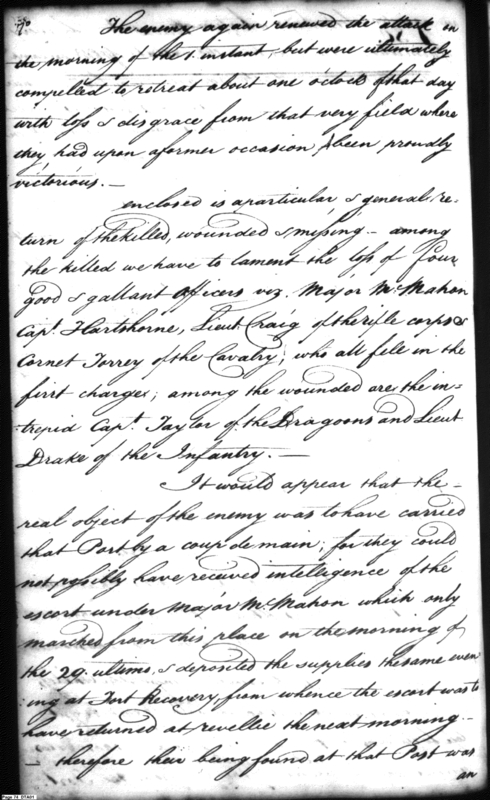 The enemy again renewed the attack in
the morning of the 1. instant, but were ultimately
compelled to retreat about one oClock of that day
with loss & disgrace from that very field where
they had upon a former occasion been proudly
victorious. —
enclosed is a particular & general re-
turn of the killed, wounded & missing — among
the killed we have to lament the loss of four
good & gallant officers viz. Major McMahon
Capt. Hartshorne, Lieut Craig of the rifle corps &
Cornet Torrey of the Cavalry; who all fell in the
first charge; among the wounded are the in-
trepid Capt. Taylor of the Dragoons and Lieut
Drake of the Infantry. —
It would appear that the —
real object of the enemy was to have carried
that Post by a coup de main; for they could
not possibly have received intelligence of the
escort under Major McMahon which only
marched from this place on the morning of
the 29. ultimo, & deposited the supplies the same even
:ing at Fort Recovery, from whence the escort was to
have returned at revellie the next morning —
— therefore their being found at that Post was
an
Page 74